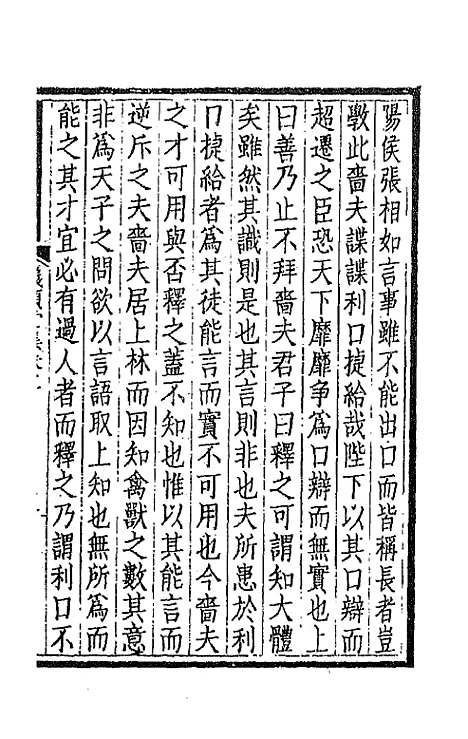 陽侯張相如言事雖不能出口而皆稱長者豈
斅此嗇夫諜諜利口捷給哉陛下以其口辯而
超遷之臣恐天下靡靡争為口辯而無實也上
曰善乃止不拜嗇夫君子曰釋之可謂知大體
矣雖然其識則是也其言則非也夫所患於利
口捷給者為其徒能言而實不可用也今嗇夫
之才可用與否釋之蓋不知也惟以其能言而
逆斥之夫嗇夫居上林而因知禽獸之數其意
非為天子之問欲以言語取上知也無所為而
能之其才宜必有過人者而釋之乃謂利口不